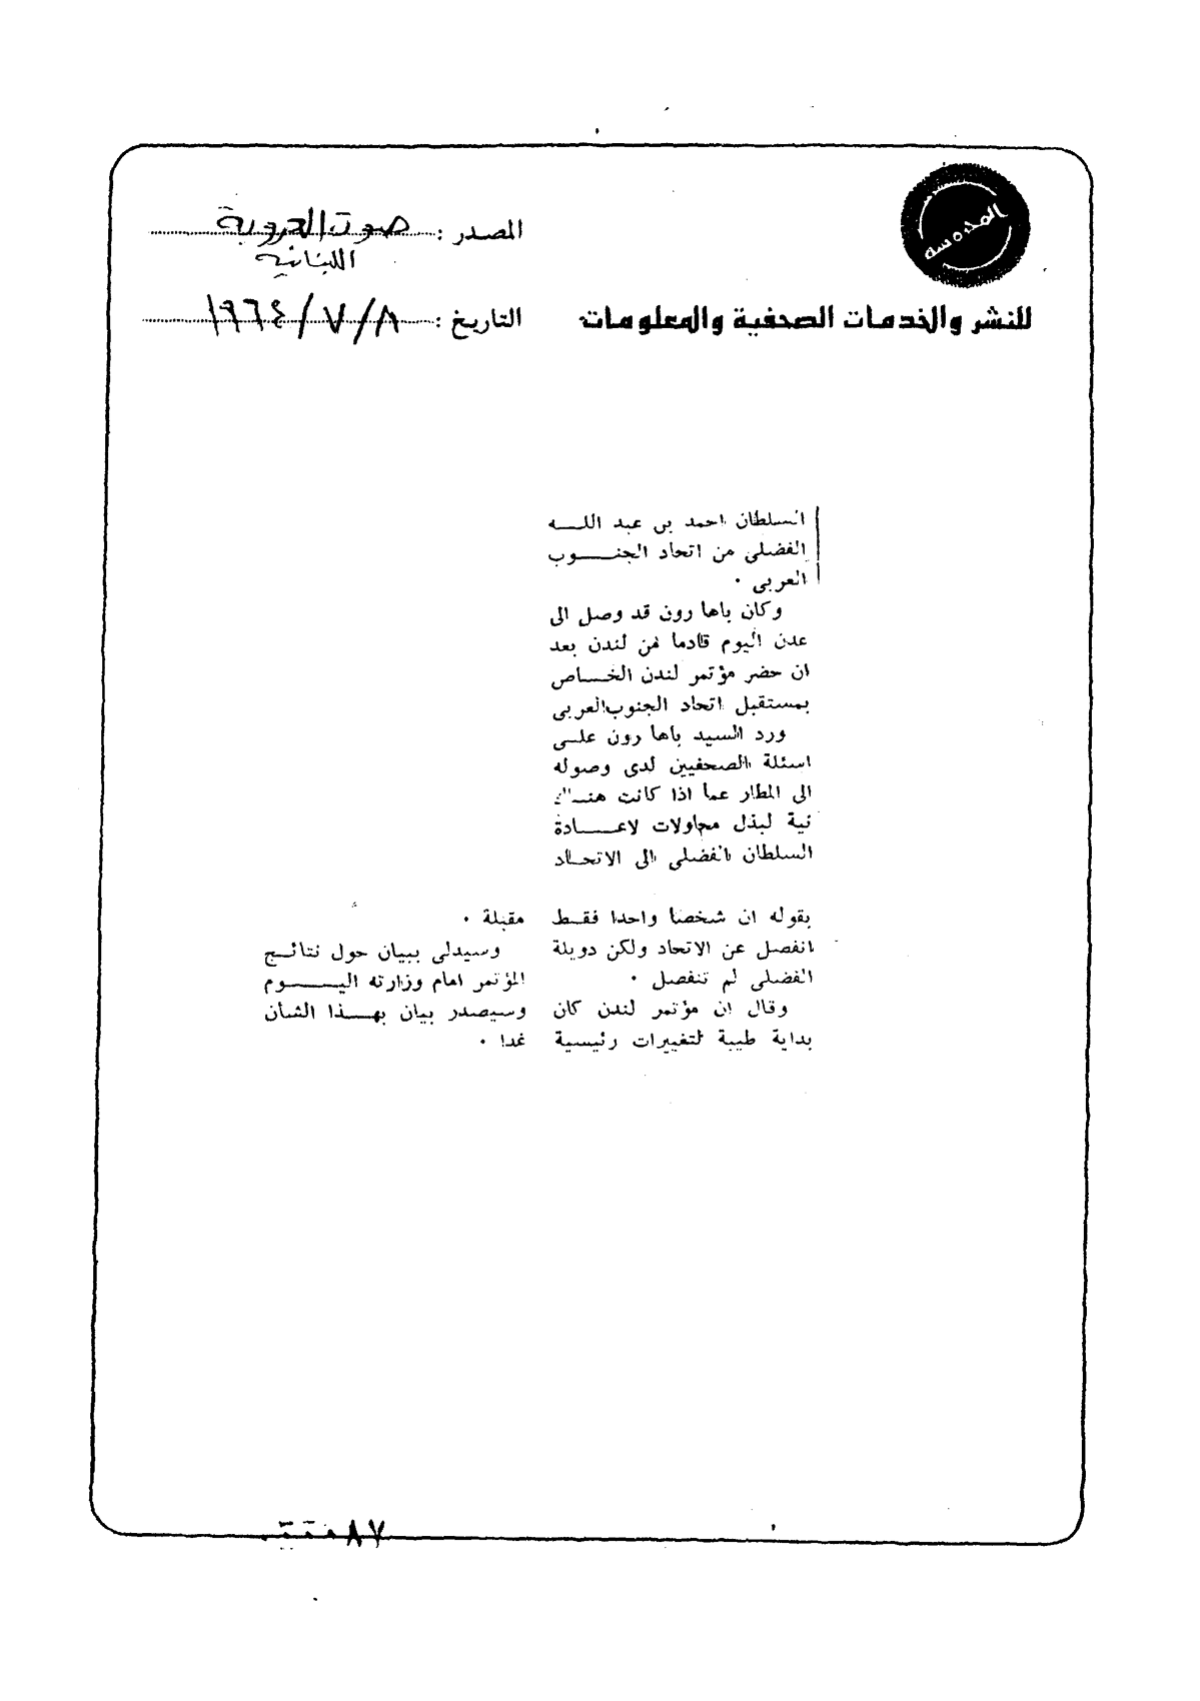 المحروسه
للنشر والخدمات الصحفية والمعلومات
المصدر : صوت العروبة
اللبنانيه
التاريخ : ١٩٦٤/٧/٨
السلطان احمد بن عبد اللـــه
الفضلى من اتحاد الجنـــوب
العربى ٠
وكان باها رون قد وصل الى
عدن اليوم قادما من لندن بعد
ان حضر مؤتمر لندن الخـاص
بمستقبل اتحاد الجنوب العربى
ورد السيد باها رون علـى
اسئلة الصحفيين لدى وصوله
الى المطار عما اذا كانت هنـاك
نية لبذل محاولات لاعـــادة
السلطان الفضلى الى الاتحـاد
بقوله ان شخصا واحدا فقـط
انفصل عن الاتحاد ولكن دويلة
الفضلى لم تنفصل ٠
وقال ان مؤتمر لندن كان
بداية طيبة لتغييرات رئيسية
مقبلة ٠
وسيدلى ببيان حول نتائـج
المؤتمر امام وزارته اليــــوم
وسيصدر بيان بهـــذا الشأن
غدا ٠